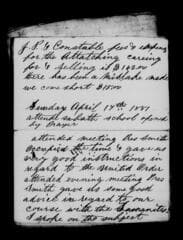 J. P. & Constable fees & expenses
for the Attatching careing
for & selling of $180.00
there has been a mistake made
we come short $18.00
Sunday April 17th 1881
attend sabath school opend
by Prayer
attended meeting Pres Smith
occupied the time & gave us
very good instructions in
regard to the United Order
attended evening meeting Pres
Smith gave us some good
advice in regard to our
course with the
I spoke on the subject